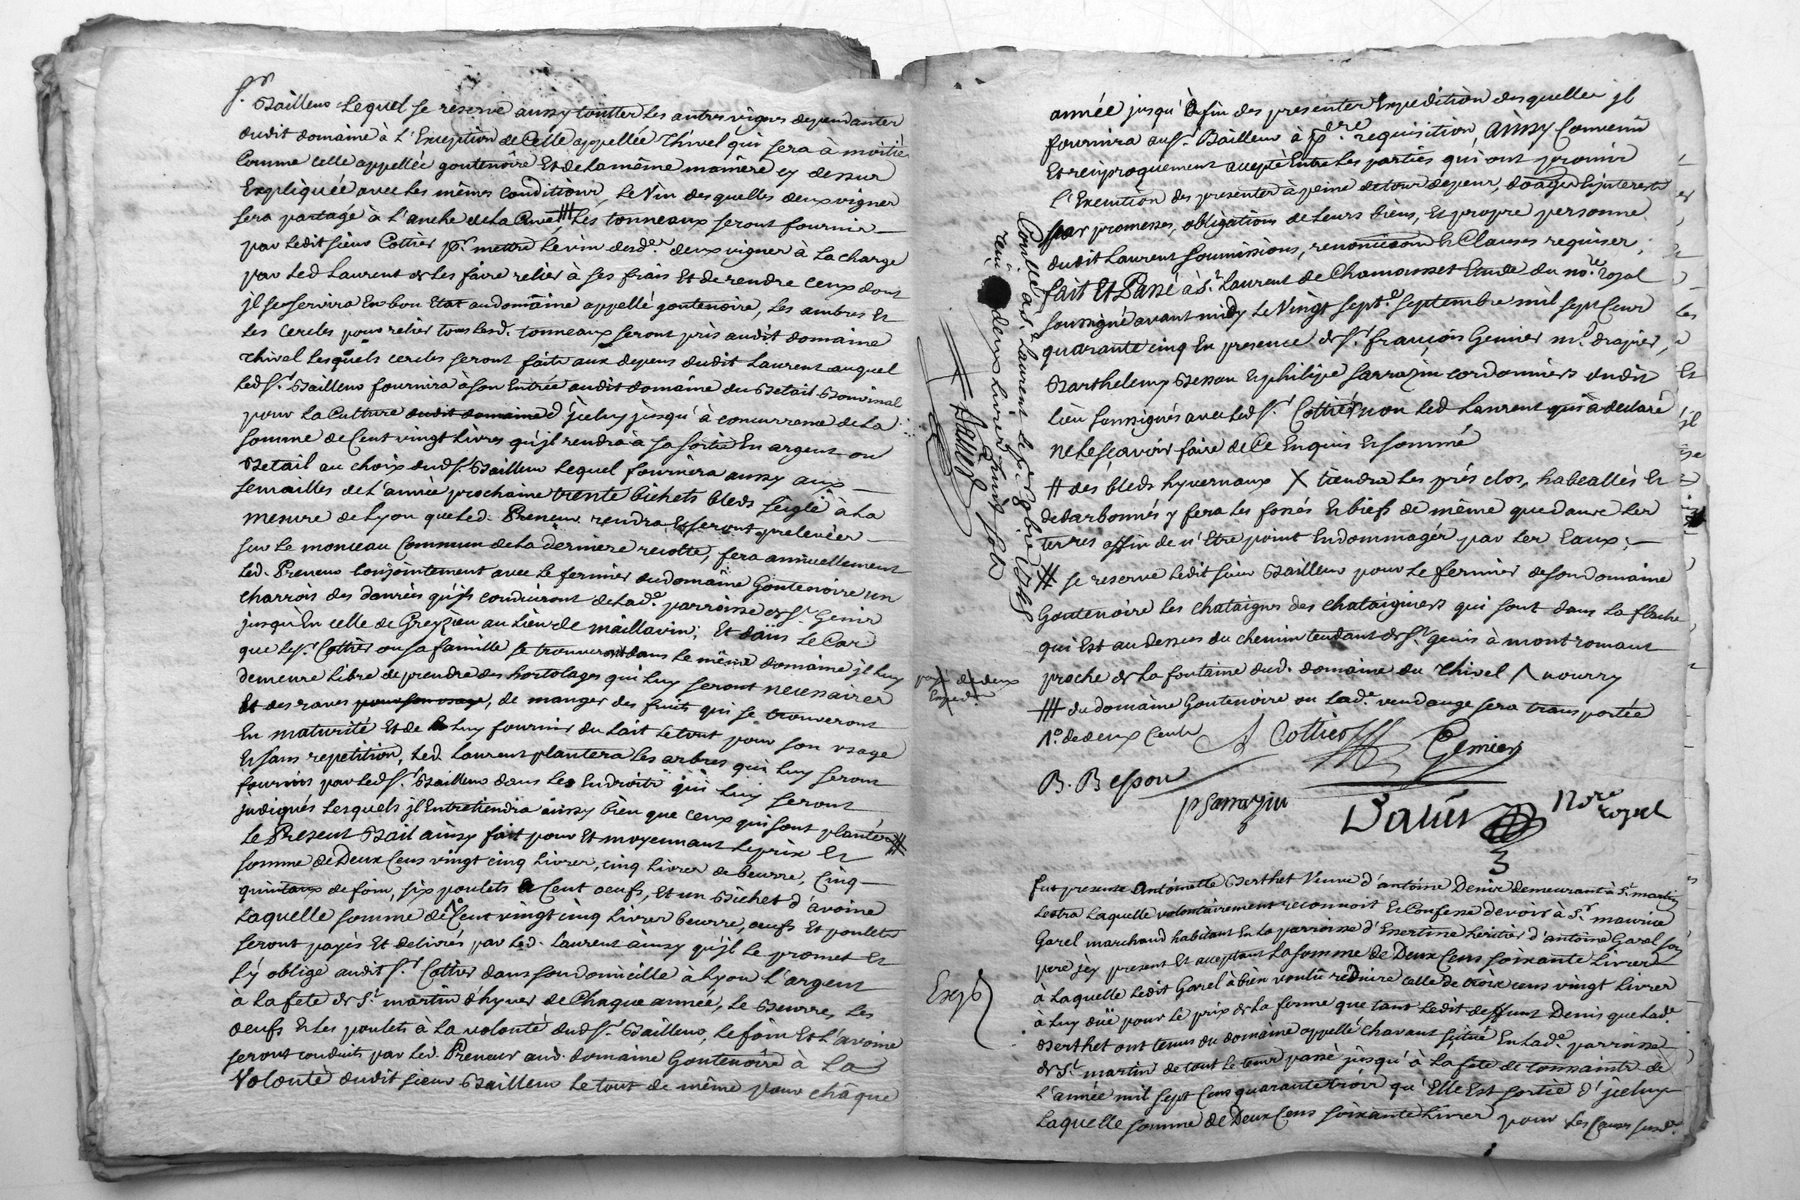 Sr. Bailleur Lequel se reserve aussy touttes Les autres vignes dependantes
dudit domaine à L'Exception de Celle appellée Thivel qui sera à moitié
Comme celle appellée goutenoire Et de La même manière cy dessus
Expliquée avec Les mêmes Conditions, Le Vin desquelles deux vignes
sera partagé à L'anche de La Cuve ╫ Les tonneaux seront fournis
par Ledit sieur Cottier pr. mettre Le vin desde. deux vignes à La charge
par Led Laurent de Les faire relier à ses frais Et de rendre ceux dont
jl se servira En bon Etat au domaine appellé goutenoire, Les ambres Et
Les Cercles pour relier tous Lesd. tonneaux seront pris audit domaine
Thivel Lesquels cercles seront faits aux depens dudit Laurent auquel
Led Sr. Bailleur fournira à son Entrée audit domaine du Betail Bouvinal
pour La Culture dudit domaine d'jceluy jusqu'à concurrence de La
somme de Cent vingt Livres qu'jl rendra à sa sortie En argent ou
Betail au choix dud Sr. Bailleur Lequel fournira aussy aux
semailles de L'année prochaine trente bichets bleds seigle à La
mesure de Lyon que Led. Preneur rendra Et seront prelevées
sur Le monceau Commun de La derniere recolte, fera annuellement
Led. Preneur conjointement avec Le fermier du domaine Goutenoire un
charrois des danrées qu'jls conduiront de Lade. parroisse de St. Genis
jusqu'En celle de Greyzieu au Lieu de maillavin; Et dans Le Cas
que Le Sr. Cottier ou sa famille se trouveroit dans Le même domaine jl Luy
demeure Libre de prendre des hortolages qui Luy seront necessaires
Et des raves pour son usage, de manger des fruits qui se trouveront
En maturité Et de Luy fournir du Lait Le tout pour son usage
Et sans repetition, Led. Laurent plantera Les arbres qui Luy seront
fournis par Led Sr. Bailleur dans Les Endroits qui Luy seront
jndiqués Lesquels jl Entretiendra ainsy bien que ceux qui sont plantés ╫
Le Present Bail ainsy fait pour Et moyennant Le prix Et
somme de Deux Cens vingt cinq Livres, cinq Livres de beurre, Cinq
quintaux de foin, six poulets Cent oeufs, Et un Bichet d'avoine
Laquelle somme de Cent vingt cinq Livres beurre, oeufs Et poulets
seront payés Et delivrés par Led. Laurent ainsy qu'jl Le promet Et
s'y oblige audit Sr. Cottier dans son domicille à Lyon L'argent
à La fete de St. martin d'hyver de Chaque année, Le Beurre, Les
oeufs Et Les poulets à La volonté dud Sr. Bailleur, Le foin Et L'avoine
seront conduits par Led. Preneur aud. domaine Goutenoire à La
Volonté dudit sieur Bailleur Le tout de même pour châque
année jusqu'à fin des presentes Expedition desquelles jl
fournira aud Sr. Bailleur à pre. requisition, ainsy Convenu
Et reciproquement accepté Entre Les parties qui ont promis
L'Execution des presentes à peine de tous depens, domages Et jnterests
par promesses, obligations de Leurs biens, Et propre personne
dudit Laurent soumissions, renonciations Et Clauses requises,
fait Et Passé à St. Laurent de Chamousset Etude du nore. royal
soussigné avant midy Le Vingt septe. Septembre mil sept Cent
quarante cinq En presence de Sr. françois Gemier md. drapier,
Barthelemy Besson Et philipe sarrazin cordonniers dudit
Lieu soussignés avec Led Sr. Cottier non Led Laurent qui a declaré
ne Le sçavoir faire de Ce Enquis Et sommé
╫ des bleds hyvernaux X tiendra Les prés clos, habeallés Et
debarbonnés y fera Les fossés Et biefs de même que dans Les
terres affin de n'Etre point Endommagés par Les Eaux;
╫ se reserve Ledit sieur Bailleur pour Le fermier de son domaine
Goutenoire Les chataignes des chataigniers qui sont dans La flache
qui Est au dessus du chemin tendant de St. genis à montromant
proche de La fontaine dud. domaine du Thivel /\ nourry
╫ du domaine Goutenoire ou Lade. vendange sera transportée
/\° de deux Cents
A Cottier Gemier
B. Besson
p Sarrazin
Nore royal
Controllé à St. Laurent Le 9bre 1745
reçu deux Livres
payé de deux
Expedon.
Exp
fut presente Antoinette Berthet Veuve d'antoine Denis demeurant à St. martin
Lestra Laquelle volontairement reconnoit Et Confesse devoir à Sr. maurice
Garel marchand habitant En La parroisse d'Essertine heritier d'antoine Garel son
pere jcy present Et acceptant La somme de Deux Cens soixante Livres
à Laquelle Ledit Garel à bien voulu reduire celle de trois cens vingt Livres
à Luy düe pour Le prix de La ferme que tant Ledit deffunt Denis que Lade.
Berthet ont tenus du domaine appellé chavant scitué En Lade. parroisse
de St. martin de tout Le tems passé jusqu'à La fete de toussaints de
L'année mil sept Cens quarante trois qu'Elle Est sortie d'jceluy
Laquelle somme de Deux Cens soixante Livres pour Les Causes susde.